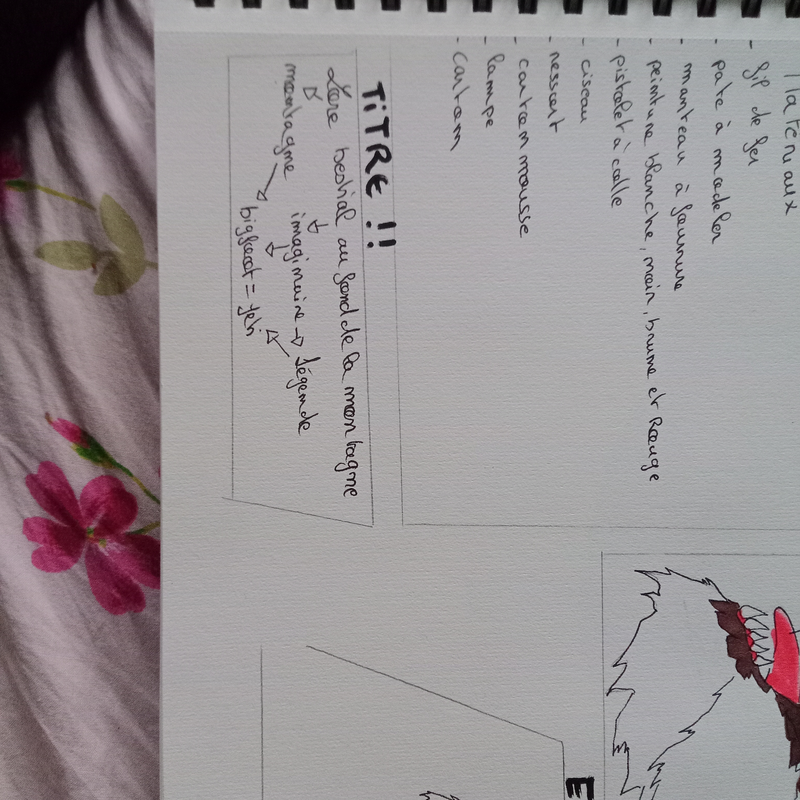 Matériaux
- fil de fer
- pate à modeler
- manteau à fourrure
- peinture blanche, noir, brune et Rouge
- pistolet à colle
- ciseau
- ressort
- carton mousse
- lampe
- carton
TiTRE !!
L'ère bestial au fond de la montagne
montagne → imaginaire → légende
bigfoot = yeti
E